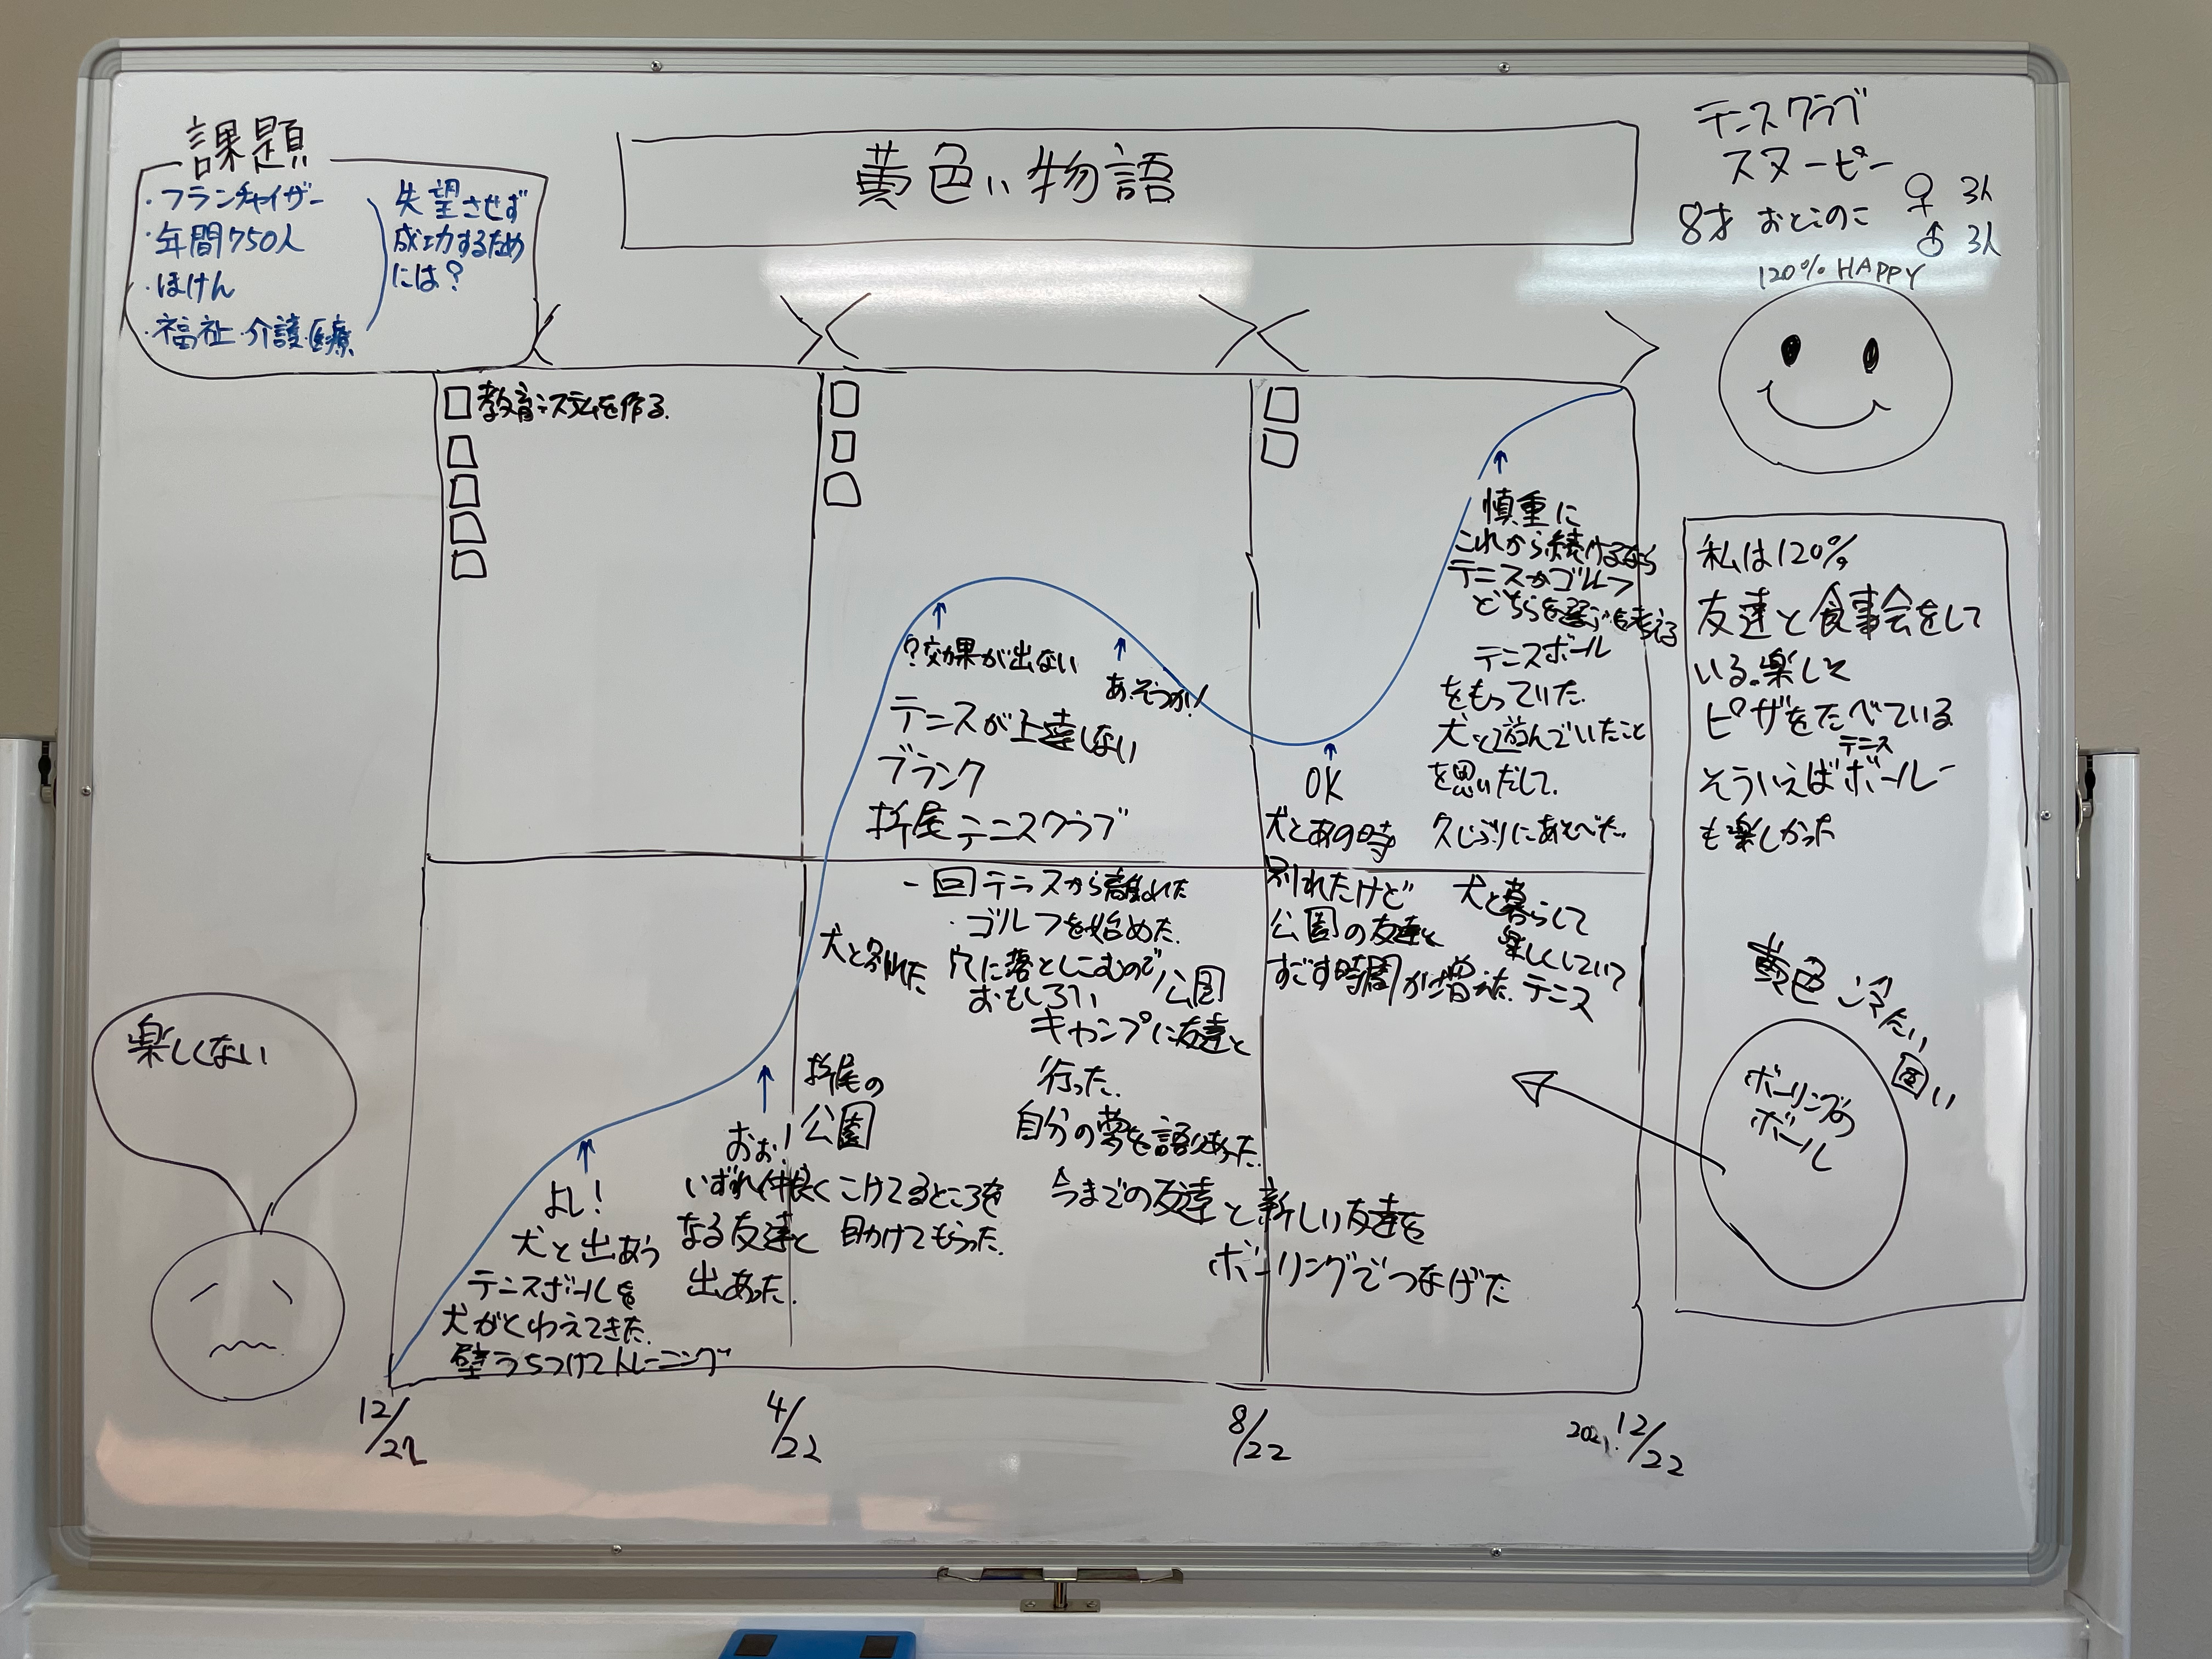 課題
・フランチャイザー
・年間750人
・ほけん
・福祉・介護・医療
失望させず
成功するため
には?
黄色い物語
テニスクラブ
スヌーピー
8才 おとこのこ
♀ 3人
♂ 3人
120% HAPPY
教育システムを作る.
慎重に
これから続けるなら
テニスかゴルフ
どちらを選ぶを考える
テニスボール
をもっていた.
犬と遊んでいたこと
を思いだして.
久しぶりにあそべた.
?効果が出ない
あ、そっか!
テニスが上達しない
ブランク
折尾テニスクラブ
OK
犬とあの時
別れたけど
公園の友達と
すごす時間が増えた.
犬と暮らして
楽しくしていて
テニス
一回テニスから離れた
・ゴルフを始めた.
穴に落としこむので
おもしろい
犬と別れた
公園
キャンプに友達と
行った.
自分の夢を語りあった.
今までの友達と新しい友達を
ボーリングでつなげた
折尾の
公園
こけてるところを
助けてもらった.
おぉ!
いずれ仲良く
なる友達と
出あった.
よし!
犬と出あう
テニスボールを
犬がくわえてきた.
壁うちつけてトレーニング
楽しくない
私は120%
友達と食事会をして
いる.楽しく
ピザをたべている
テニス
そういえばボール
も楽しかった
黄色
冷たい
固い
ボーリングの
ボール
12/22
4/22
8/22
12/22